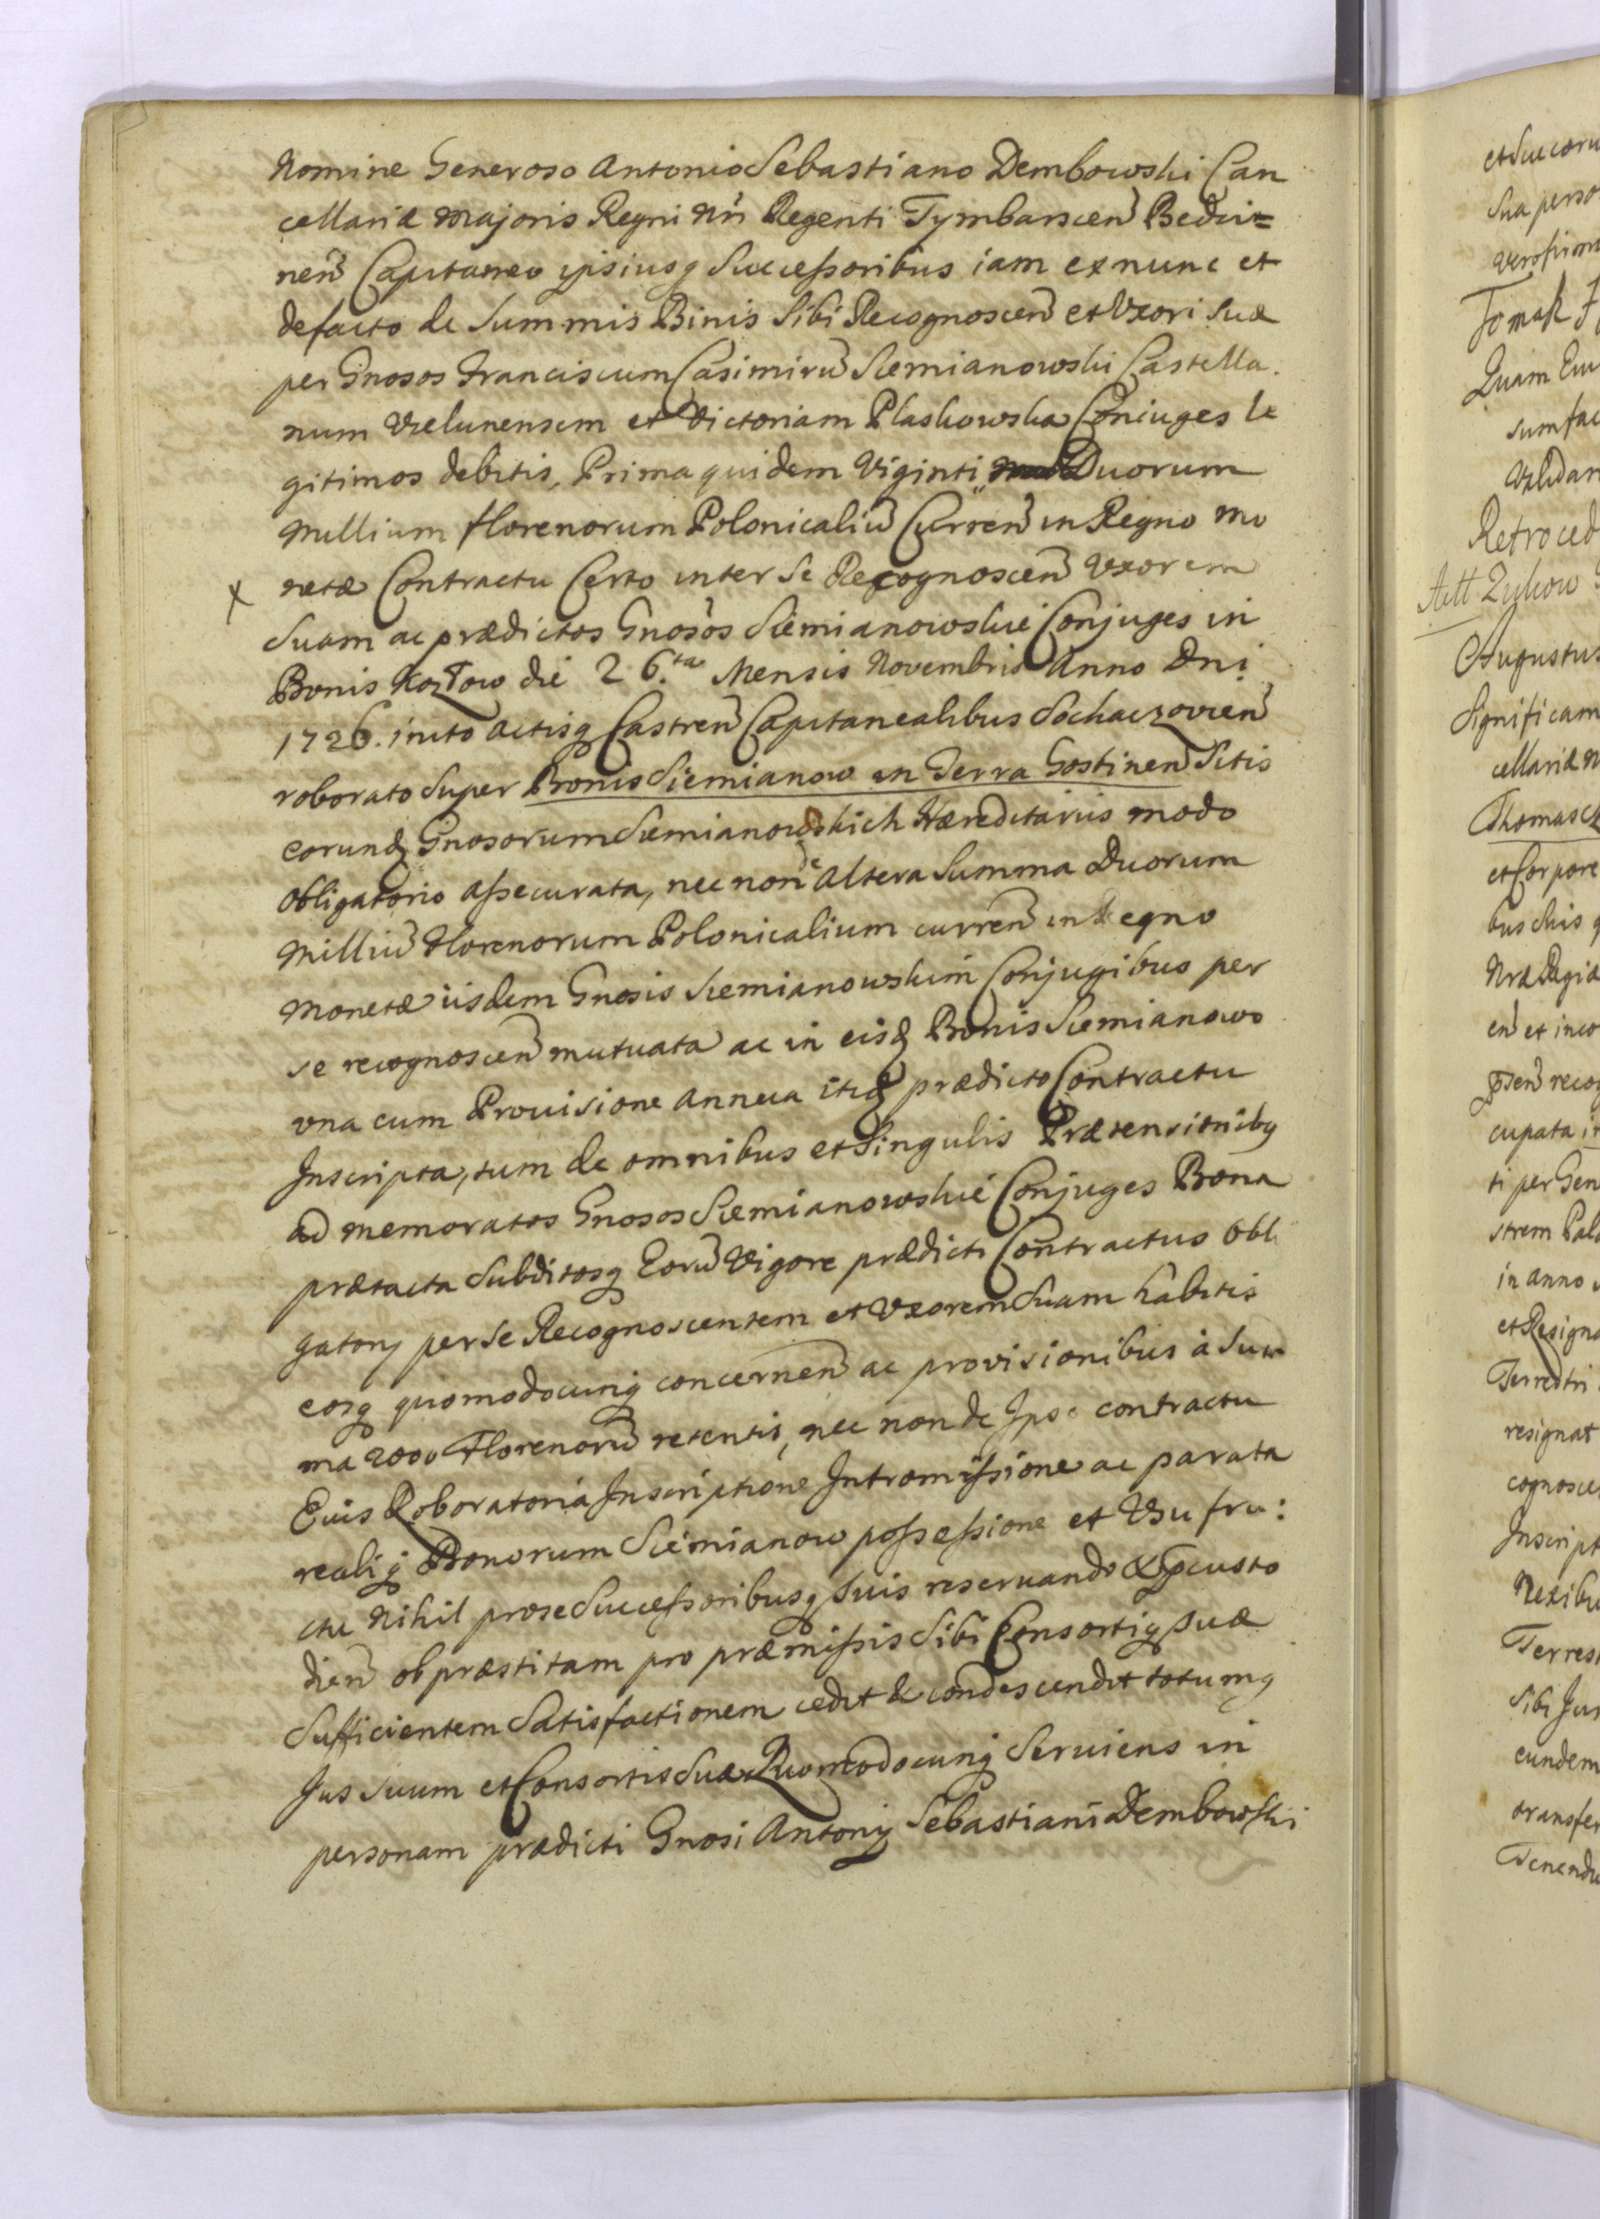 Nomine Generoso Antonio Sebastiano Dembowski Can
cellariæ Majoris Regni Nri Regenti Tymbarscen Bedzi=
nen Capitaneo ipsiusq Successoribus iam ex nunc et
defacto de Summis Binis Sibi Recognoscen et Uxori Suæ
per Gnosos Franciscum Casimiru Siemianowski Castella
num Vielunensem et Victoriam Plaskowska Coniuges le
gitimos debitis, Prima quidem Viginti Duorum
Millium florenorum Polonicaliu Curren in Regno mo
x netæ Contractu Certo inter Se Recognoscen Uxorem
Suam ac prædictos Gnosos Siemianowskie Conjuges in
Bonis Kozłow die 26.ta Mensis Novembris Anno Dni
1726. inito Actisq Castren Capitanealibus Sochaczovien
roborato Super Bonis Siemianow in Terra Gostinen Sitis
eorundq Gnosorum Siemianowskich Hæreditariis modo
obligatorio assecurata, nec non de Altera Summa Duorum
Milliu Florenorum Polonicalium curren in Regno
Monetæ iisdem Gnosis Siemianowskim Conjugibus per
se recognoscen mutuata ac in eisdq Bonis Siemianowo
una cum Provisione Annua itidq prædicto Contractu
Inscripta, tum de omnibus et Singulis Prætensionibq
ad memoratos Gnosos Siemianowskie Conjuges Bona
prætacta Subditosq Eoru Vigore prædicti Contractus Obli
gatorij per Se Recognoscentem et Uxorem Suam habitis
eosq quomodocunq concernen ac provisionibus à Sum
ma 2000 Florenoru retentis, nec non de Ipso contractu
Eius Roboratoria Inscriptione Intromissione ac parata
realiq Bonorum Siemianow possessione et Usu fru:
ctu Nihil pro se Successoribusq suis reservando
dien ob præstitam pro præmissis Sibi Consortiq Suæ
Sufficientem Satisfactionem cedit & condescendit totumq
Jus Suum et Consortis Suæ Quomodocunq Serviens in
personam prædicti Gnosi Antonij Sebastiani Dembowski
et Successoru
Sua perso
Tomasz
Quam
sum fac
Validam
Retroced
Att Zukow
Augustus
Significam
cellariæ
Thomasz
et Corpore
bus Suis
Nræ Regiæ
en et inco
cupata in
ti per Gen
strem Pala
in anno
et Resigna
Terrestri
resignat
cognosce
Inscript
Nexibu
Terres
Sibi Jus
eundem
transfer
Tenendu